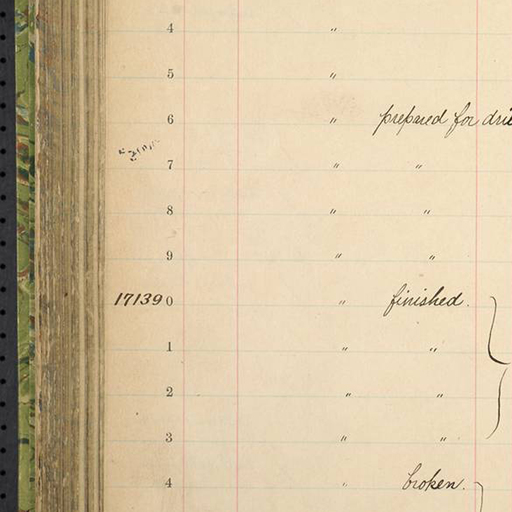 4 "
5 "
6 " prepared for
7 " "
8 " "
9 " "
171390 " finished.
1 " "
2 " "
3 " "
4 " broken.